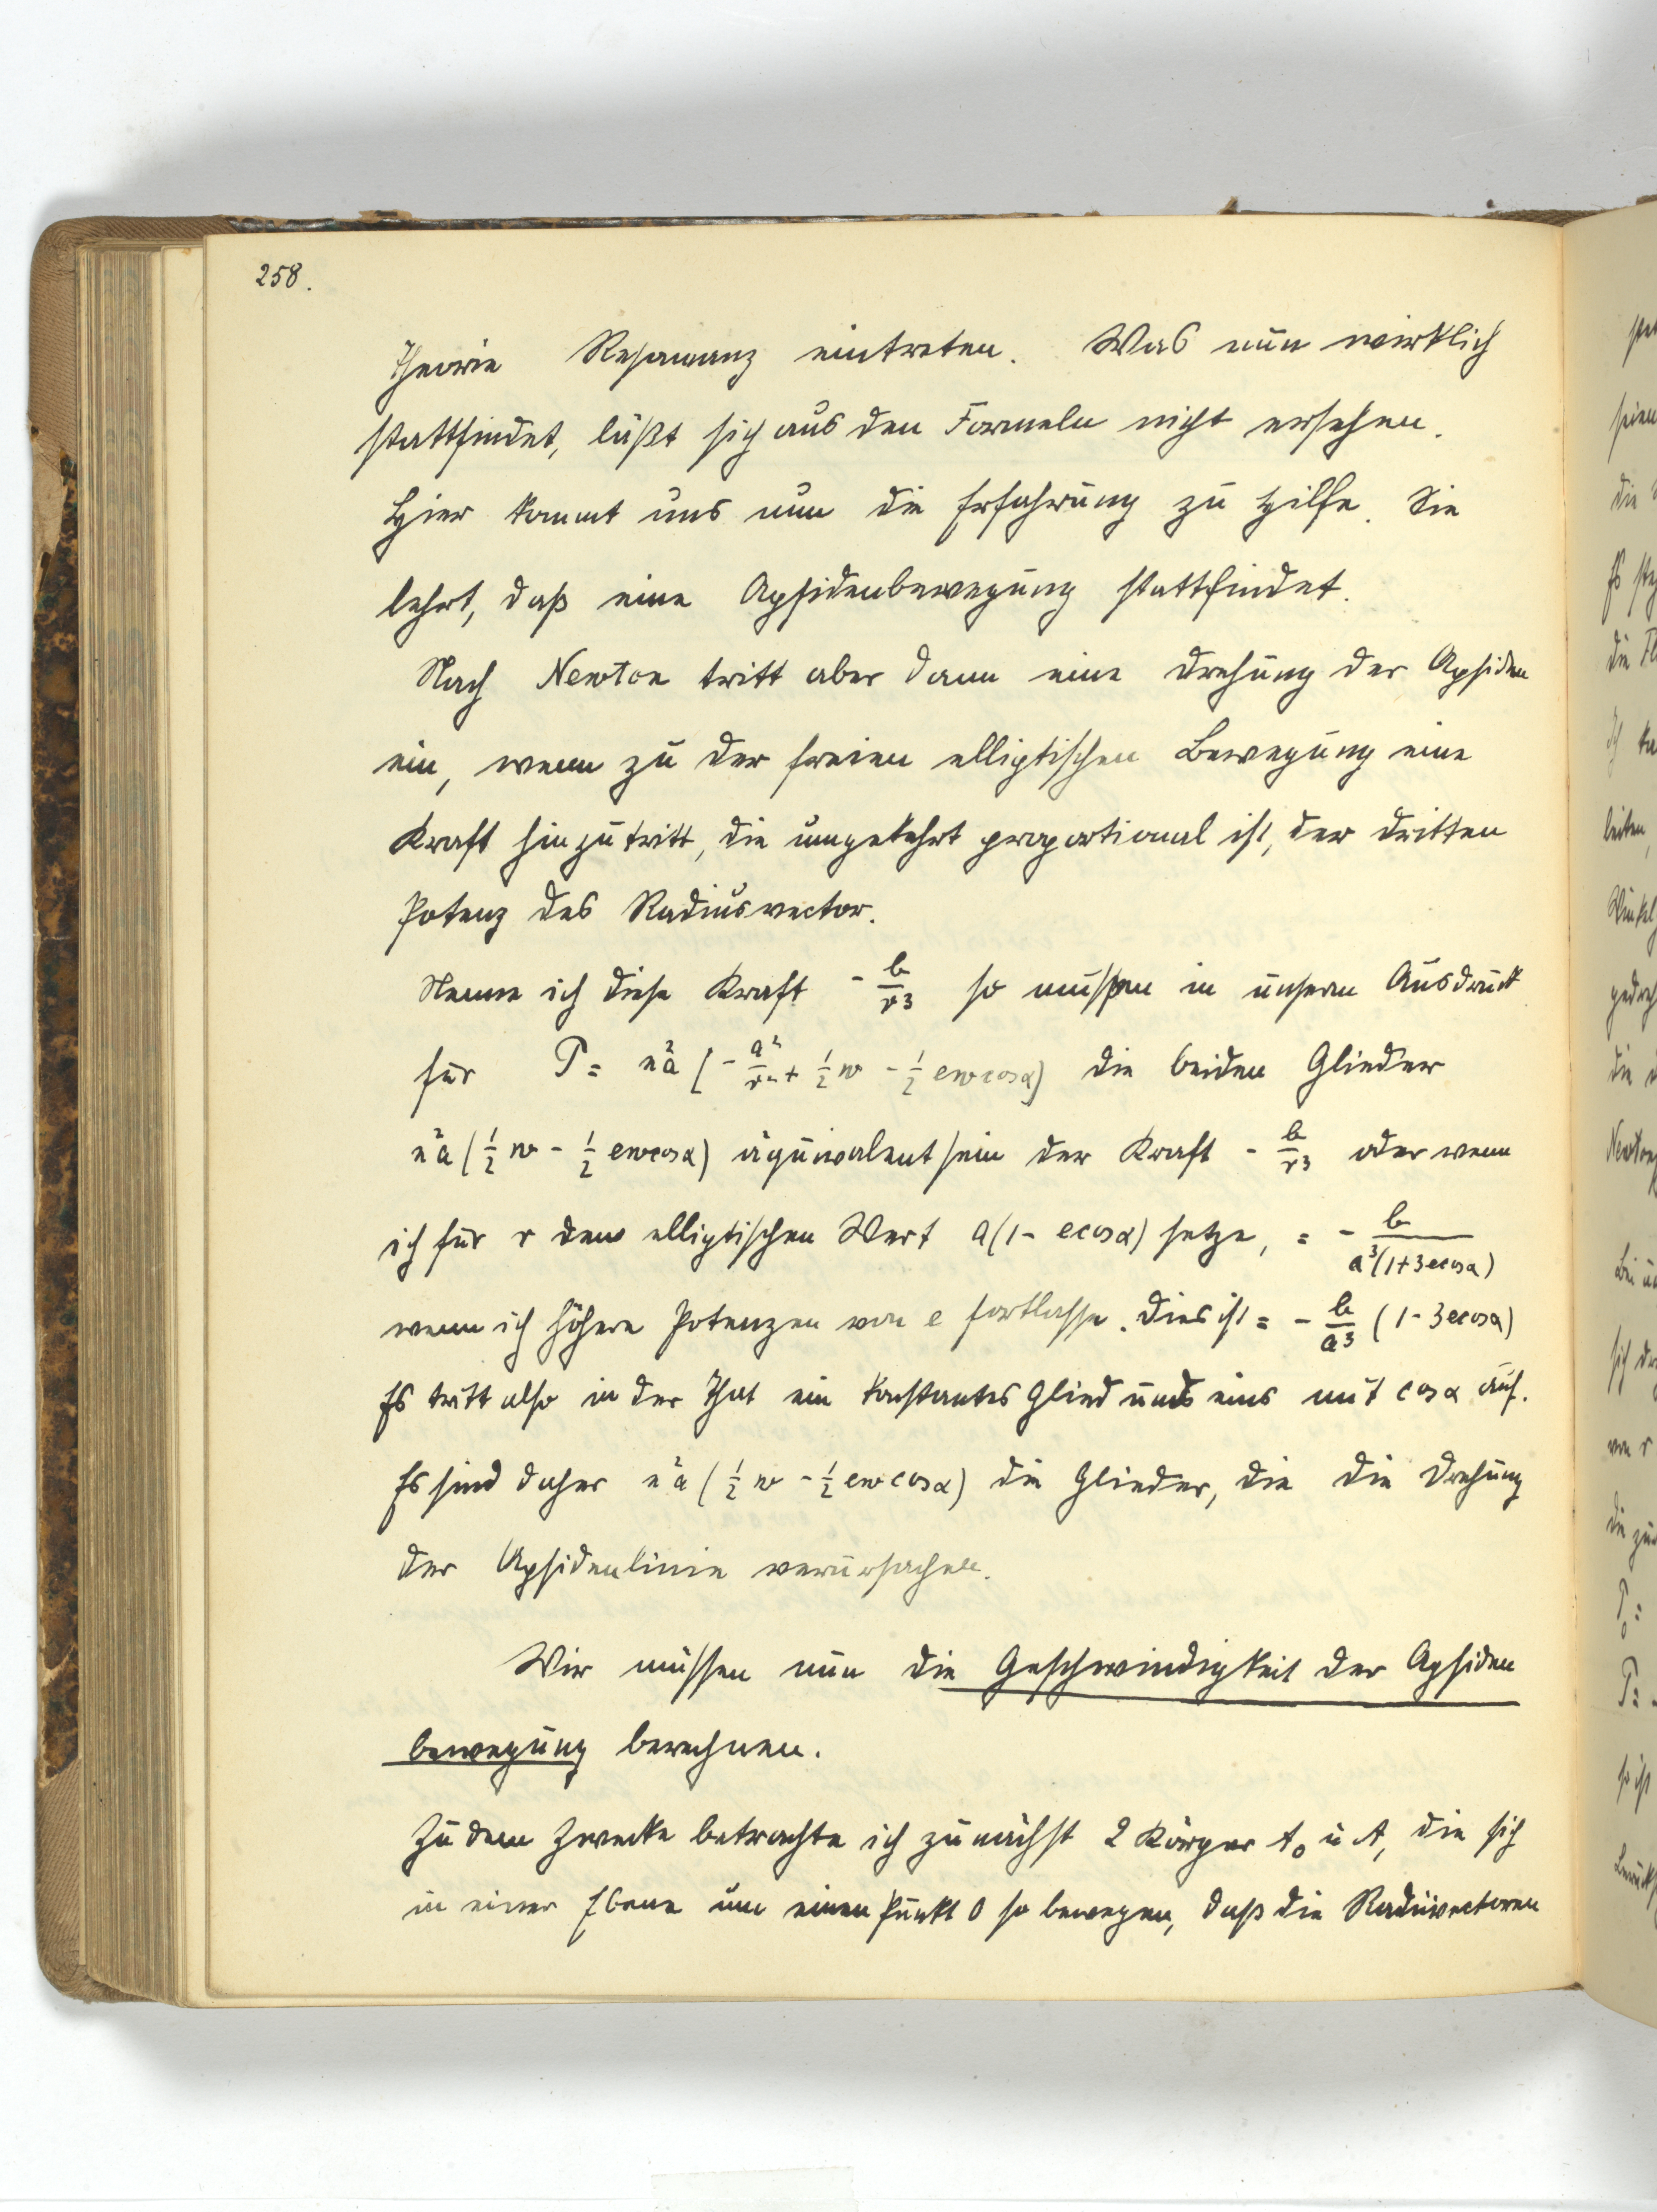 258.
Theorie Resonanz eintreten. Was nun wirklich
stattfindet, läßt sich aus den Formeln nicht ersehen.
Hier kommt uns nun die Erfahrung zu Hilfe. Sie
lehrt, daß eine Apsidenbewegung stattfindet.
Nach Newton tritt aber dann eine Drehung der Apsiden
ein, wenn zu der freien elliptischen Bewegung eine
Kraft hinzutritt, die umgekehrt proportional ist, der dritten
Potenz des Radiusvector.
Nenne ich diese Kraft - b/r³ so müssen in unserem Ausdruck
für P = n²a [- a²/r² + 1/2 w - 1/2 ew cos α) die beiden Glieder
n²a (1/2 w - 1/2 ew cos α) äquivalent sein der Kraft - b/r³ oder wenn
ich für r den elliptischen Wert a(1 - e cos α) setze, = - b/a³(1+3e cos α)
wenn ich höhere Potenzen von e fortlasse. Dies ist = - b/a³ (1 - 3e cos α)
Es tritt also in der That ein konstantes Glied und eins mit cos α auf.
Es sind daher n²a (1/2 w - 1/2 ew cos α) die Glieder, die die Drehung
der Apsidenlinie verursachen.
Wir müssen nun die Geschwindigkeit der Apsiden
bewegung berechnen.
Zu dem Zwecke betrachte ich zunächst 2 Körper A₀ u A, die sich
in einer Ebene um einen Punkt O so bewegen, daß die Radiivectoren